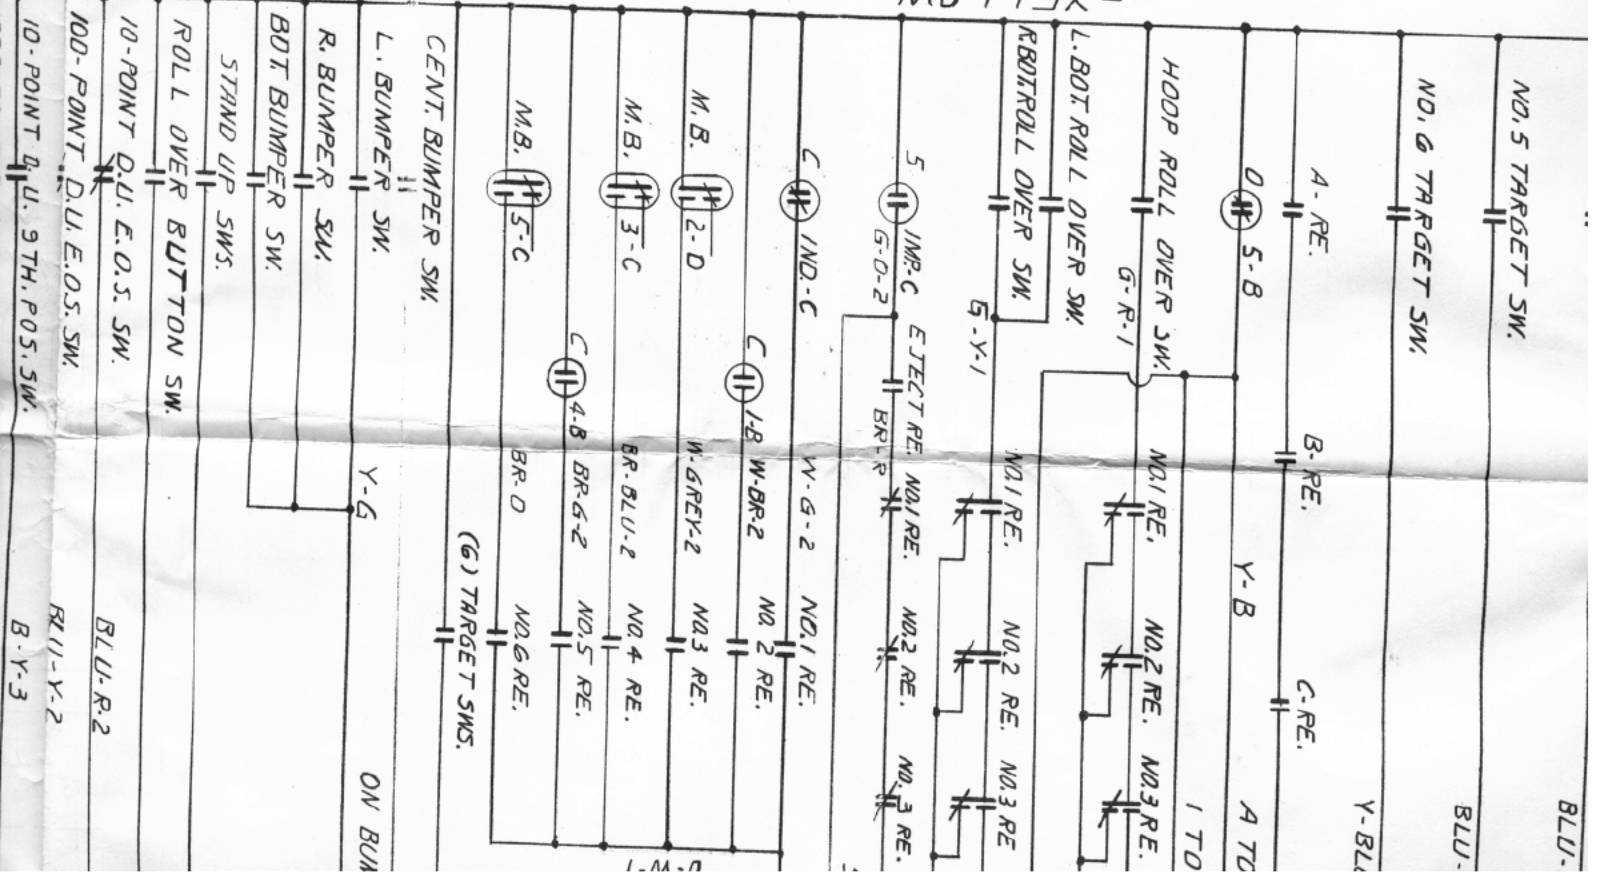 YELLOW
NO. 5 TARGET SW.
BLU-
BLU-
NO. 6 TARGET SW.
Y-BL
A-RE.
B-RE.
C-RE.
O
5-B
Y-B
A TO
1 TO
HOOP ROLL OVER SW.
G-R-1
NO.1 RE.
NO.2 RE.
NO.3 RE.
L. BOT. ROLL OVER SW.
R.BOT.ROLL OVER SW.
G-Y-1
NO.1 RE.
NO.2 RE.
NO.3 RE
5
IMP.-C
G-O-2
EJECT RE.
BR-R
NO.1 RE.
NO.2 RE.
NO. 3 RE.
C
IND-C
W-G-2
NO.1 RE.
C
1-B
W-BR-2
NO. 2 RE.
M.B.
2-D
W-GREY-2
NO.3 RE.
M.B.
3-C
BR-BLU-2
NO.4 RE.
C
4-B
BR-G-2
NO.5 RE.
M.B.
5-C
BR-O
NO.6 RE.
CENT. BUMPER SW.
(6) TARGET SWS.
L. BUMPER SW.
Y-G
ON BUM
R. BUMPER SW.
BOT. BUMPER SW.
STAND UP SWS.
ROLL OVER BUTTON SW.
10-POINT D.U. E.O.S. SW.
BLU-R-2
100-POINT D.U.E.O.S. SW.
BLU-Y-2
10-POINT D.U. 9TH. POS. SW.
B-Y-3